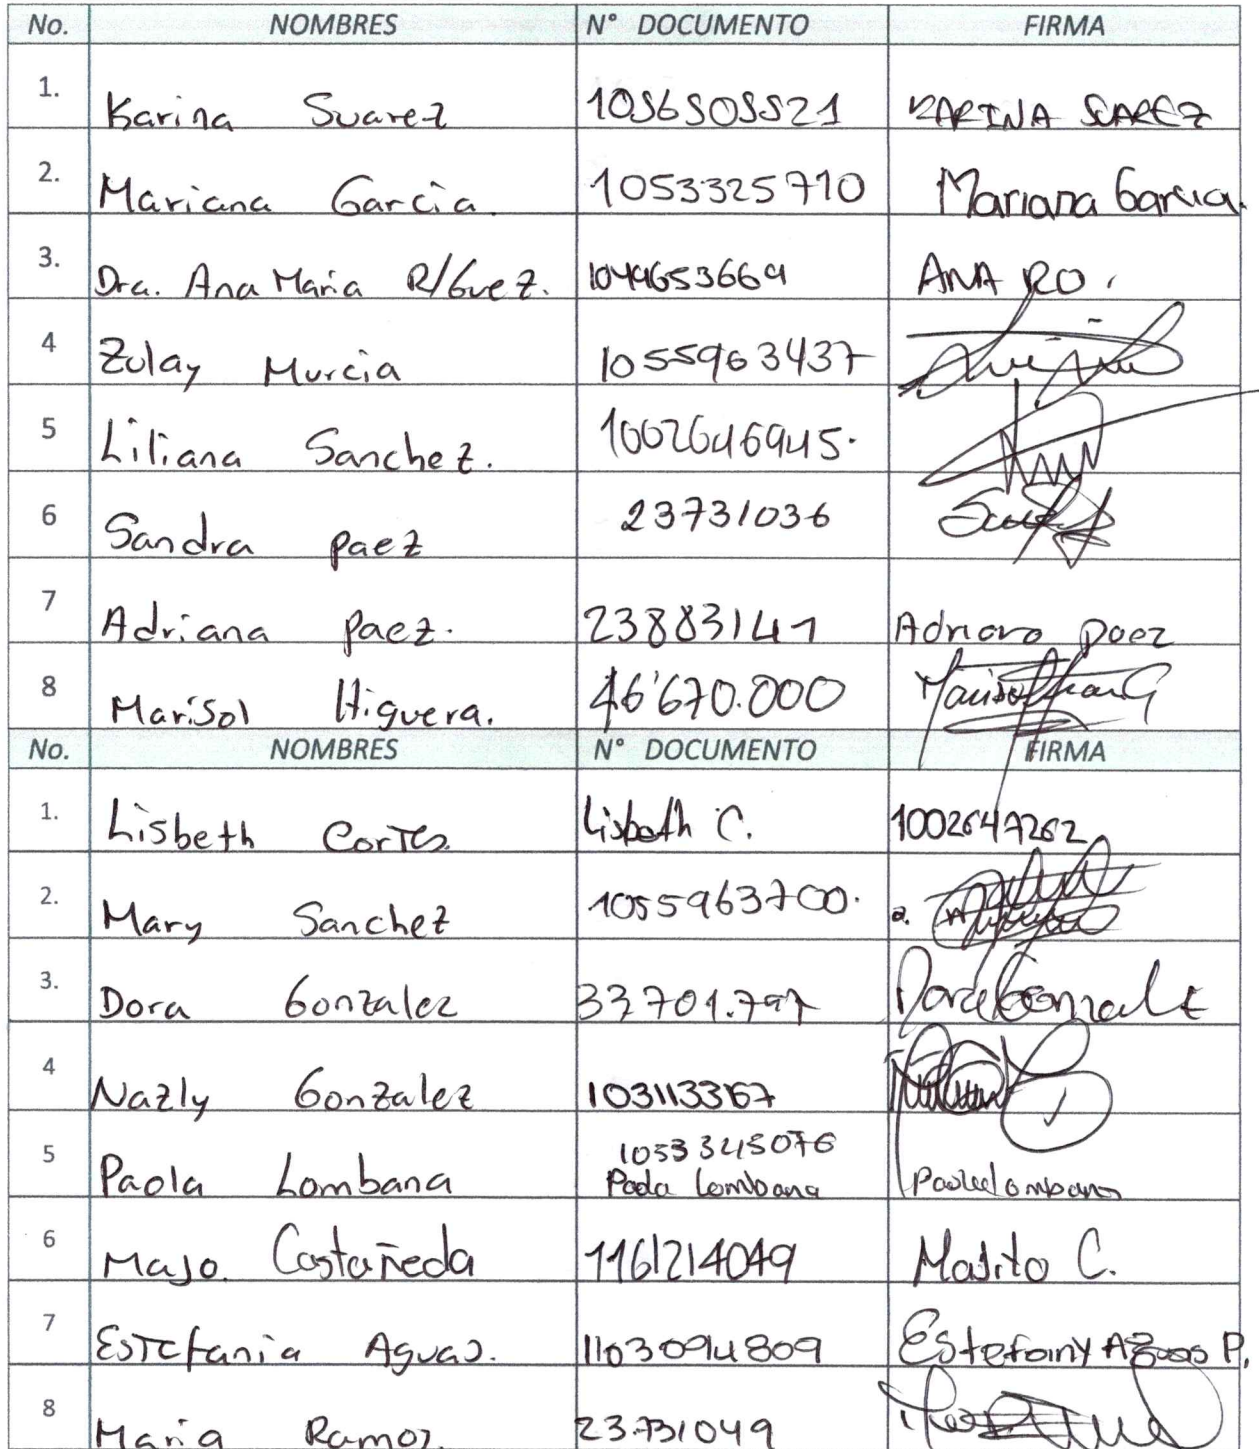 No. NOMBRES N° DOCUMENTO FIRMA
1. Karina Suarez 1056505521 KARINA SUAREZ
2. Mariana Garcia. 1053325710 Mariana Garcia.
3. Dra. Ana Maria R/Guez. 1049653669 ANA RO.
4 Zulay Murcia 1055963437
5 Liliana Sanchez. 1002646945.
6 Sandra paez 23731036
7 Adriana paez. 23883141 Adriana paez
8 MariSol Higuera. 46'670.000
No. NOMBRES N° DOCUMENTO FIRMA
1. Lisbeth Cortes Lisbeth C. 1002647262
2. Mary Sanchez 1055963700. 2.
3. Dora Gonzalez 33701.797 Dora Gonzalez
4 Nazly Gonzalez 1031133367
5 Paola Lombana 1053345076
Paola Lombana Paola Lombana
6 Majo. Castañeda 1161214049 Majito C.
7 Estefania Aguas. 1103094809 Estefainy Aguas P.
8 Maria Ramoz. 23.731049